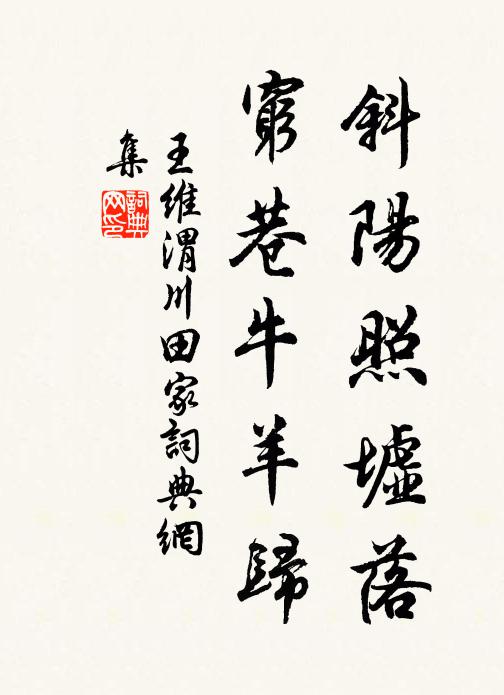 斜陽照墟落
窮巷牛羊歸
王維渭川田家詞典網
集
詞典
网印